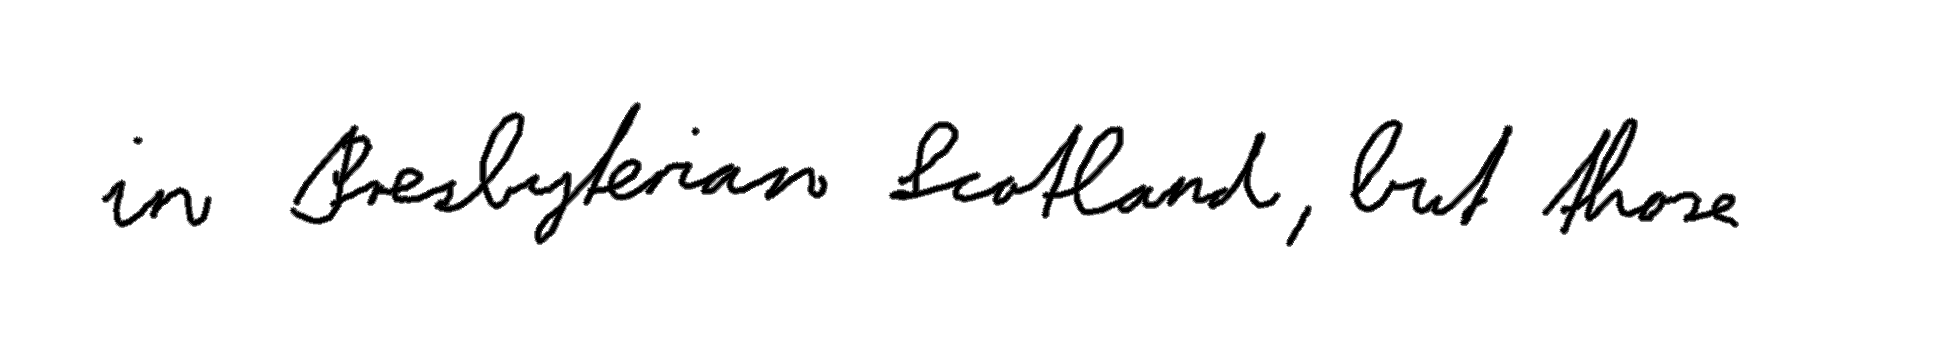 in Presbyterian Scotland, but those